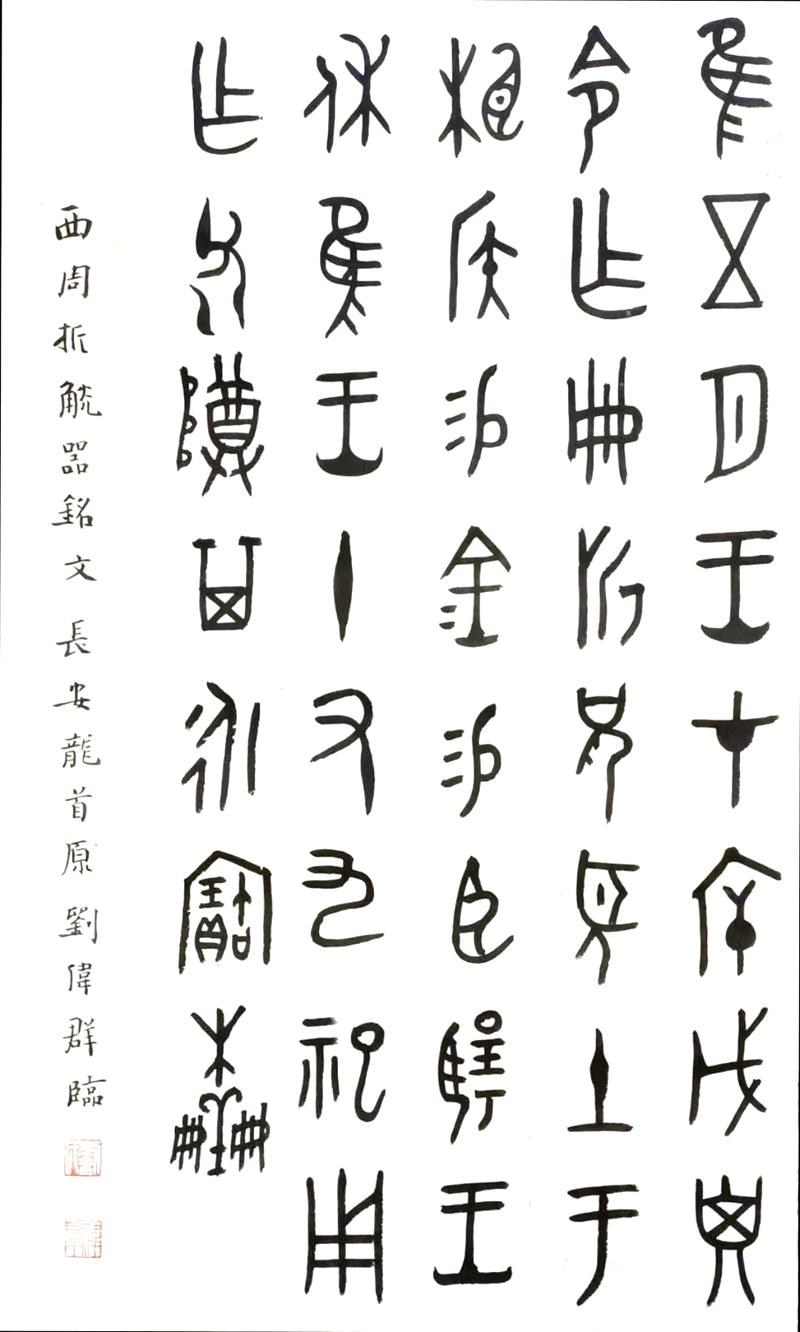 隹五月王才斥戊子
令乍冊折兄望土于
相侯易金易臣揚王
休隹王十又九祀用
乍父乙尊其永寶木羊冊冊
西周折觥器銘文 長安龍首原劉偉群臨